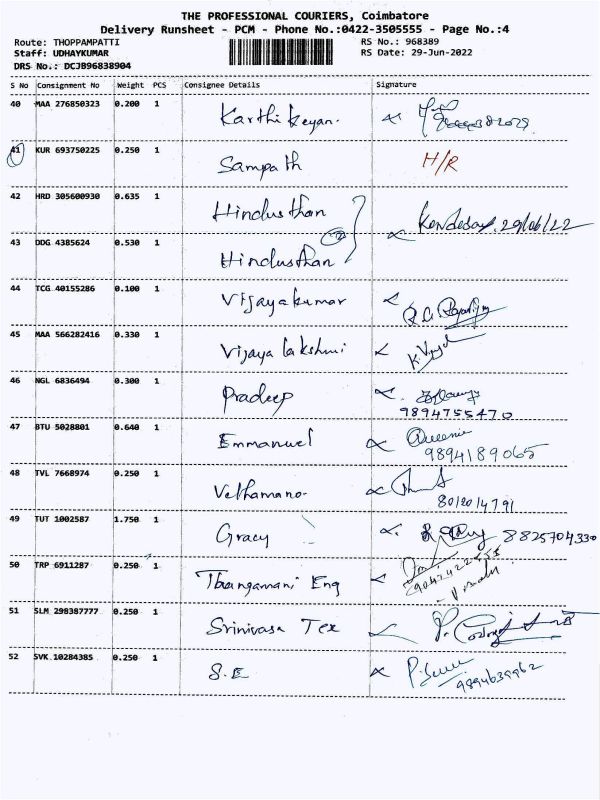 THE PROFESSIONAL COURIERS, Coimbatore
Delivery Runsheet - PCM - Phone No.:0422-3505555 - Page No.:4
Route: THOPPAMPATTI RS No.: 968389
Staff: UDHAYKUMAR RS Date: 29-Jun-2022
DRS No.: DCJB96838904
S No Consignment No Weight PCS Consignee Details Signature
40 MAA 276850323 0.200 1 Karthikeyan.
41 KUR 693750225 0.250 1 Sampath H/R
42 HRD 305600930 0.635 1 Hindusthan 29/06/22
43 DDG 4385624 0.530 1 Hindusthan
44 TCG 40155286 0.100 1 Vijayakumar
45 MAA 566282416 0.330 1 Vijaya lakshmi
46 NGL 6836494 0.300 1 Pradeep
9894755470
47 BTU 5028801 0.640 1 Emmanuel
9894189065
48 TVL 7668974 0.250 1 Vethamano.
49 TUT 1002587 1.750 1 Gracy 8825704330
50 TRP 6911287 0.250 1 Thangamani Eng
51 SLM 298387777 0.250 1 Srinivasa Tex
52 SVK 10284385 0.250 1 S.E
9894639962